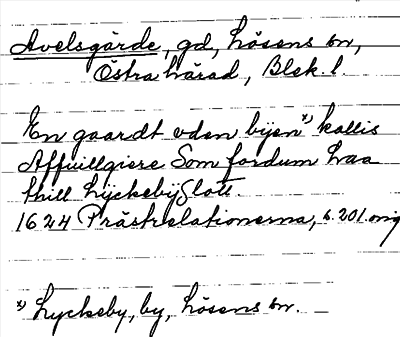 Avelsgärde, gd, Lösens sn,
Östra härad, Blek. l.
En gaardt uden bÿen x) kallis
Affuillgiere Som fordum haa
thill LÿckebÿSlott.
1624 Prästrelationerna, s. 201. orig
x) Lyckeby, by, Lösens sn.